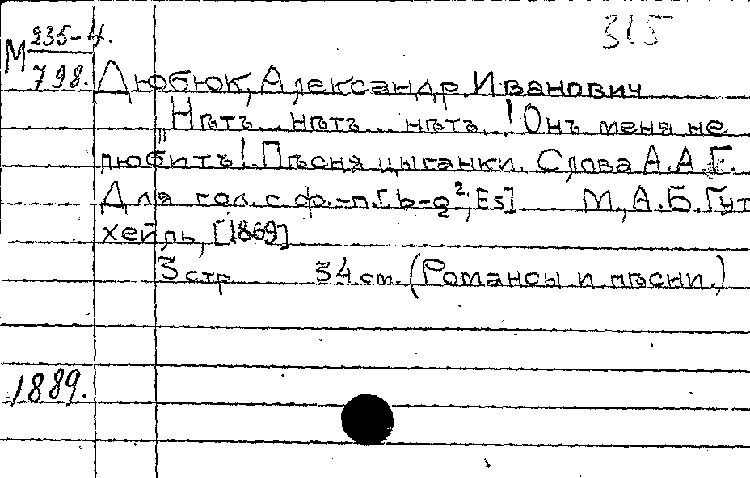 315
М 235-4.
798.
Дюбюк, Александр Иванович
Нѣтъ... нѣтъ... нѣтъ..! Онъ меня не
любитъ"! Пѣсня цыганки. Слова А.А.Г.
Для гол. с ф.-п. [b-g²; Es] М., А.Б. Гут
хейль, [1869]
3 стр 34 cm. (Романсы и пѣсни.)
1889.